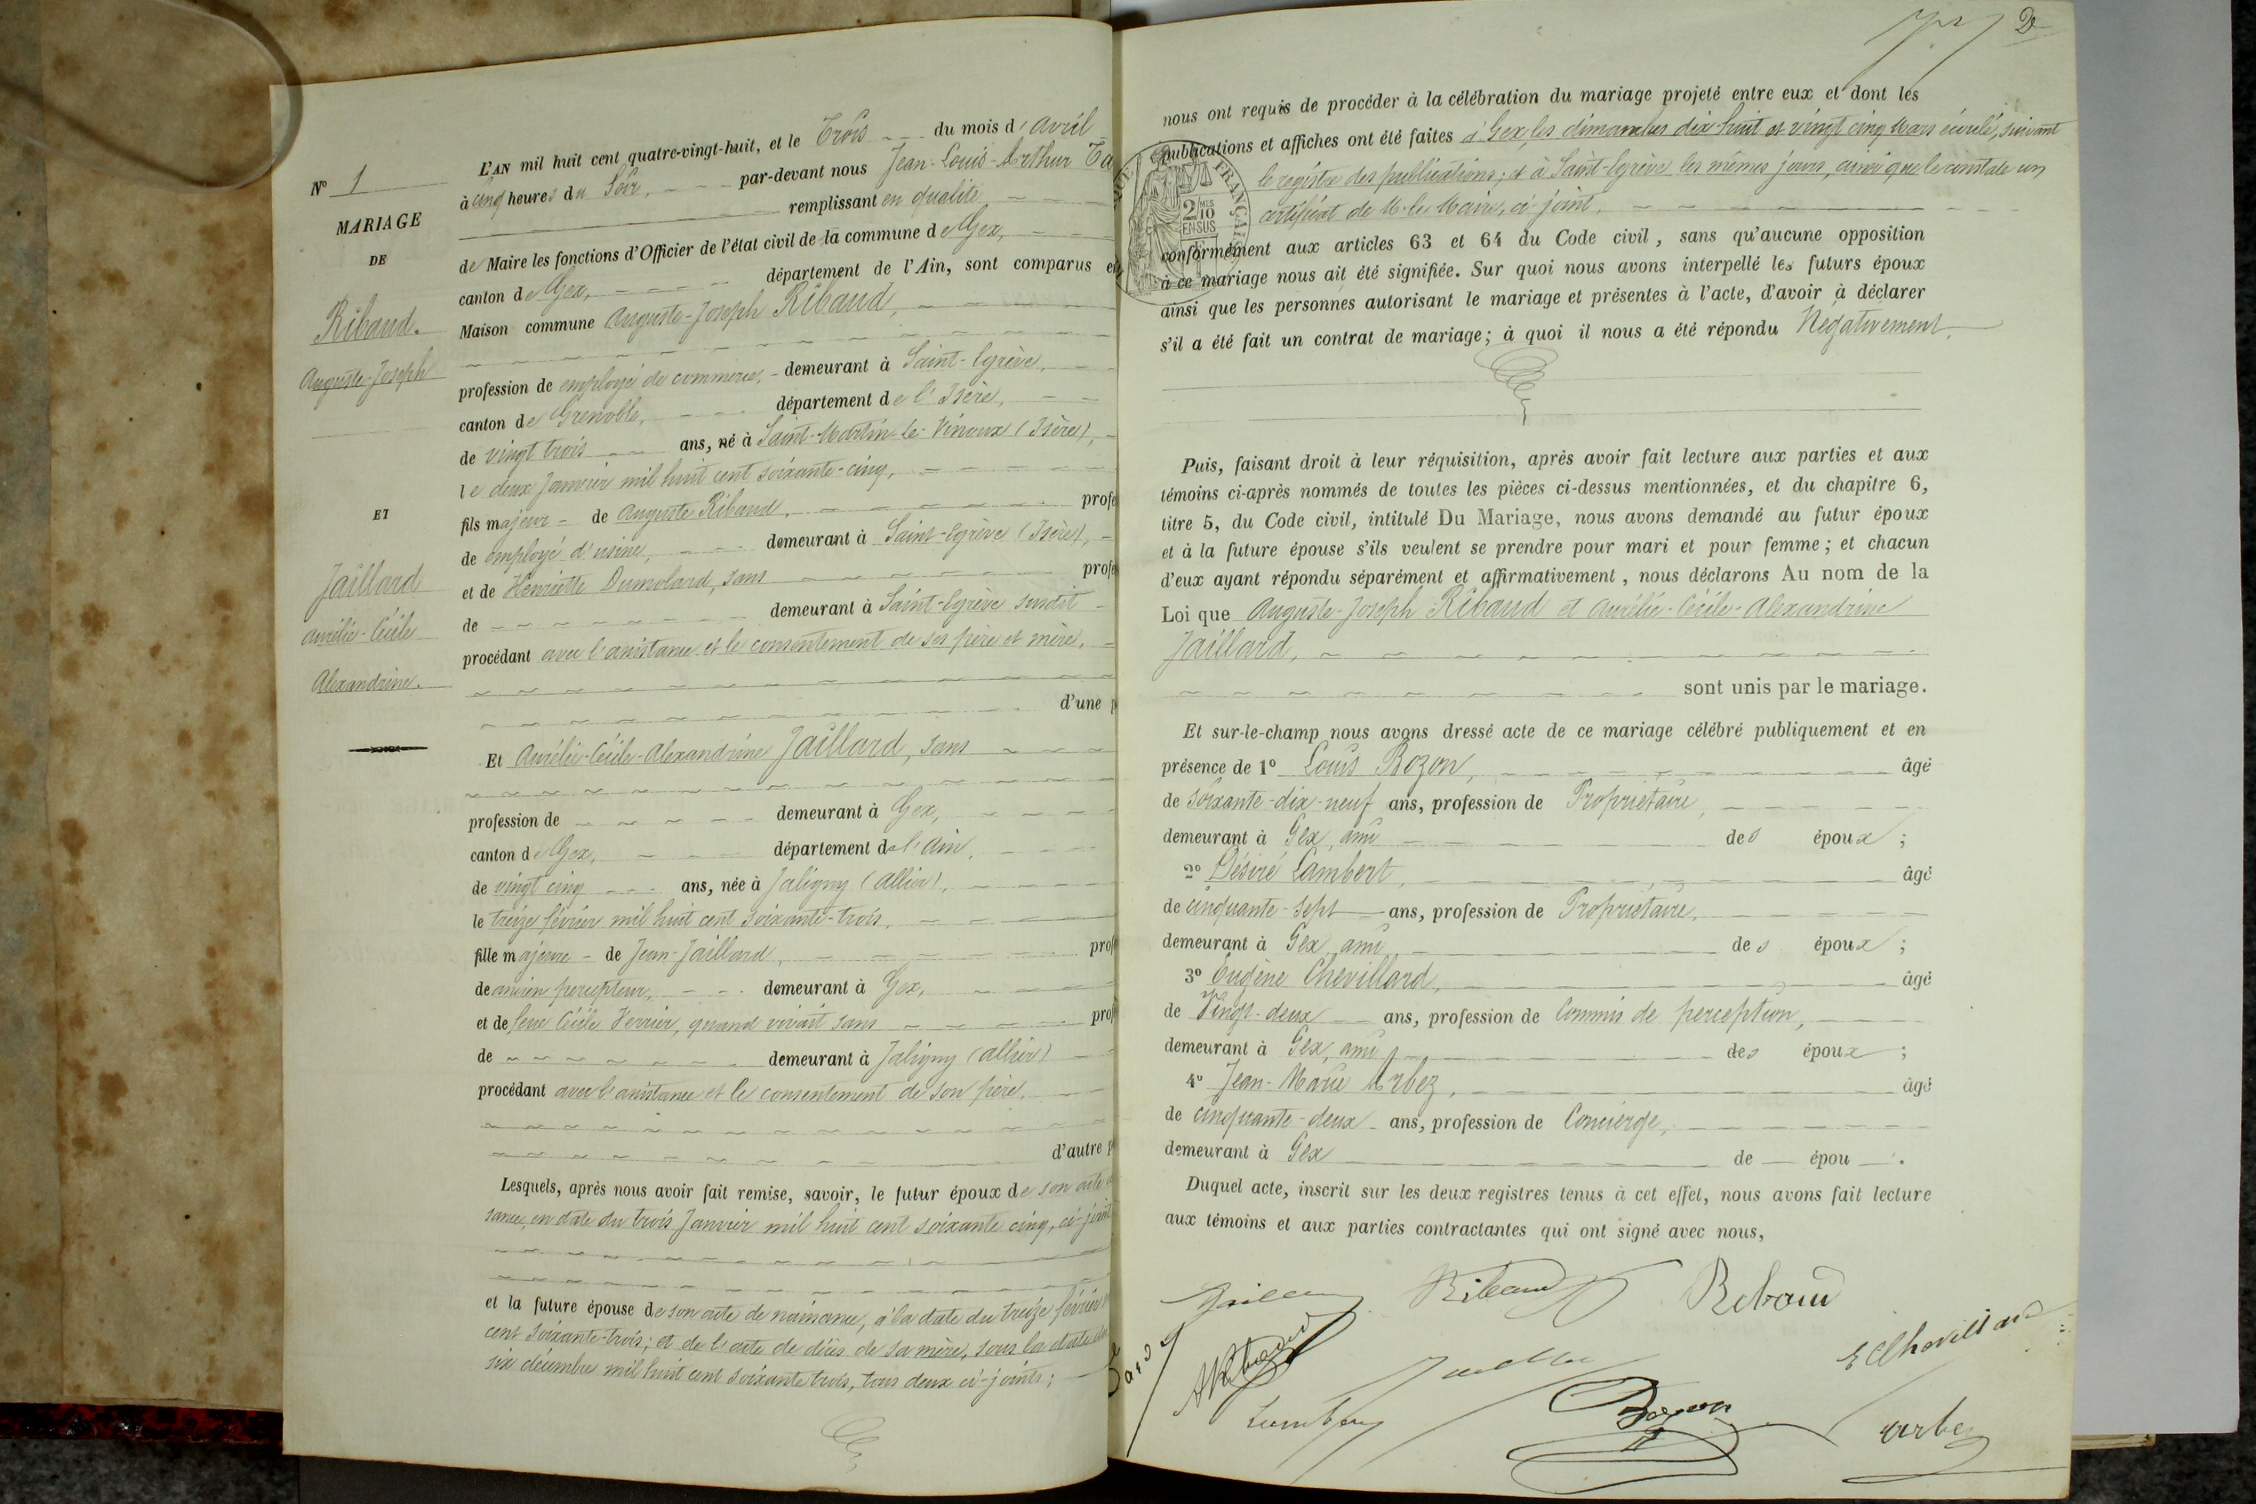 N° 1
MARIAGE
DE
Ribaud.
Auguste-Joseph
ET
Jaillard
Aurélie-Cécile
Alexandrine.
L'AN mil huit cent quatre-vingt-huit, et le Trois du mois d'Avril
à cinq heures du Soir, par-devant nous Jean-Louis-Arthur Ta
remplissant en qualité
de Maire les fonctions d'Officier de l'état civil de la commune de Gex,
canton de Gex, département de l'Ain, sont comparus en
Maison commune Auguste-Joseph Ribaud,
profession de employé de commerce, demeurant à Saint-Egrève,
canton de Grenoble, département de l'Isère,
de vingt trois ans, né à Saint-Martin-le-Vinoux (Isère),
le deux Janvier mil huit cent soixante-cinq,
fils majeur de Auguste Ribaud, profe
de employé d'usine, demeurant à Saint-Egrève (Isère),
et de Henriette Dumolard, sans profe
de demeurant à Saint-Egrève susdit
procédant avec l'assistance et le consentement de ses père et mère,
d'une p
Et Aurélie-Cécile-Alexandrine Jaillard, sans
profession de demeurant à Gex,
canton de Gex, département de l'Ain,
de vingt cinq ans, née à Jaligny (Allier),
le treize février mil huit cent soixante-trois,
fille majeure de Jean Jaillard, prof
de ancien percepteur, demeurant à Gex,
et de feue Cécile Verrier, quand vivait sans prof
de demeurant à Jaligny (Allier)
procédant avec l'assistance et le consentement de son père,
d'autre p
Lesquels, après nous avoir fait remise, savoir, le futur époux de son acte
sance, en date du trois Janvier mil huit cent soixante cinq, ci-joint
et la future épouse de son acte de naissance, à la date du treize février
cent soixante-trois; et de l'acte de décès de sa mère, sous la date du
six décembre mil huit cent soixante trois, tous deux ci-joints;
2
nous ont requis de procéder à la célébration du mariage projeté entre eux et dont les
publications et affiches ont été faites à Gex, les dimanches dix-huit et vingt cinq Mars écoulé, suivant
le registre des publications; et à Saint-Egrève les mêmes jours, ainsi que le constate un
certificat de M. le Maire, ci-joint,
FRANÇAI
2 MES
10
EN SUS
conformément aux articles 63 et 64 du Code civil, sans qu'aucune opposition
à ce mariage nous ait été signifiée. Sur quoi nous avons interpellé les futurs époux
ainsi que les personnes autorisant le mariage et présentes à l'acte, d'avoir à déclarer
s'il a été fait un contrat de mariage; à quoi il nous a été répondu Négativement.
Puis, faisant droit à leur réquisition, après avoir fait lecture aux parties et aux
témoins ci-après nommés de toutes les pièces ci-dessus mentionnées, et du chapitre 6,
titre 5, du Code civil, intitulé Du Mariage, nous avons demandé au futur époux
et à la future épouse s'ils veulent se prendre pour mari et pour femme; et chacun
d'eux ayant répondu séparément et affirmativement, nous déclarons Au nom de la
Loi que Auguste-Joseph Ribaud et Aurélie-Cécile-Alexandrine
Jaillard,
sont unis par le mariage.
Et sur-le-champ nous avons dressé acte de ce mariage célébré publiquement et en
présence de 1° Louis Bozon, âgé
de soixante-dix-neuf ans, profession de Propriétaire,
demeurant à Gex, ami des époux;
2° Désiré Lambert, âgé
de cinquante-sept ans, profession de Propriétaire,
demeurant à Gex, ami des époux;
3° Eugène Chevillard, âgé
de Vingt-deux ans, profession de Commis de perception,
demeurant à Gex, ami des époux;
4° Jean-Marie Arbez, âgé
de cinquante-deux ans, profession de Concierge,
demeurant à Gex de épou.
Duquel acte, inscrit sur les deux registres tenus à cet effet, nous avons fait lecture
aux témoins et aux parties contractantes qui ont signé avec nous,
Ribaud Ribaud
ARibaud E Chevillard
Lambert Bozon Arbez